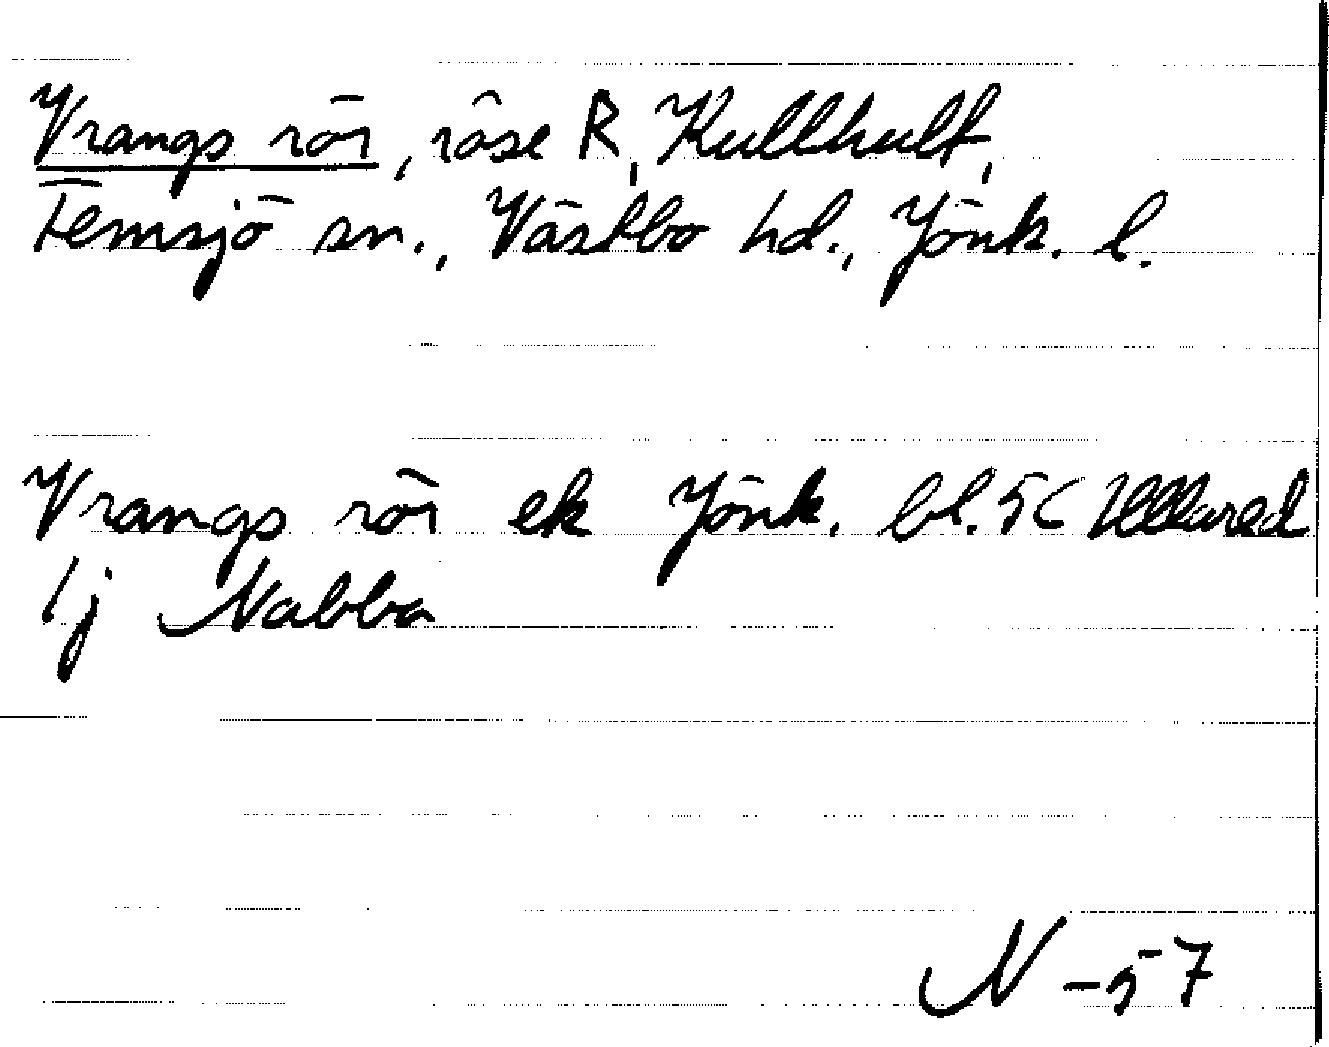 Vrangs rör, röse R, Kullhult,
Femsjö sn., Västbo hd., Jönk. l.
Vrangs rör ek Jönk. bl. 5C Ullared
1j Nabba
N -57